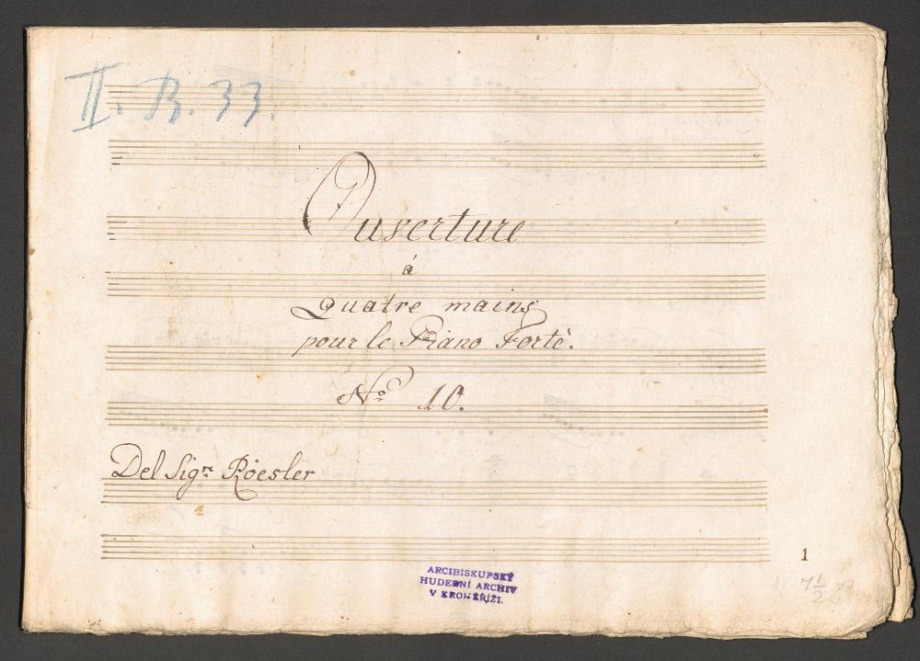 II. B. 33.
Ouverture
á
Quatre mains
pour le Piano Fortè.
No 10.
Del Sigr Röesler
1
ARCIBISKUPSKÝ
HUDEBNÍ ARCHIV
V KROMĚŘÍŽI.
7 1/2